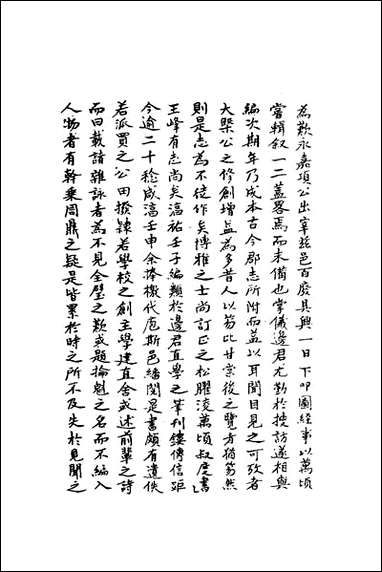 為歎永嘉項公出宰玆邑百廢具興一日下叩圖經事以萬頃
嘗輯叙一二蓋畧焉而未備也掌儀邊君尤勤於搜訪遂相與
編次期年乃成本古今郡志所附而益以耳聞目見之可攷者
大槩公之修創增益為多昔人以笏比甘棠後之覽者猶笏然
則是志為不徒作矣博雅之士尚訂正之松臞淩萬頃叔度書
玉峰有志尚矣淳祐壬子編類於邊君直學之筆刊鏤傳信距
今逾二十稔咸淳壬申余捧檄代庖斯邑繙閱是書頗有遺佚
若派買之公田撥隸若學校之創主學建直舍或述前輩之詩
而曰載諸雜詠者為不見全璧之歎或題掄魁之名而不編入
人物者有幹棄周鼎之疑是皆累於時之所不及失於見聞之